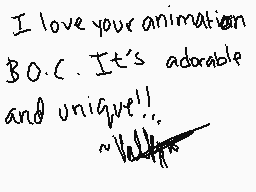 I love your animation
B.O.C. It's adorable
and unique!!